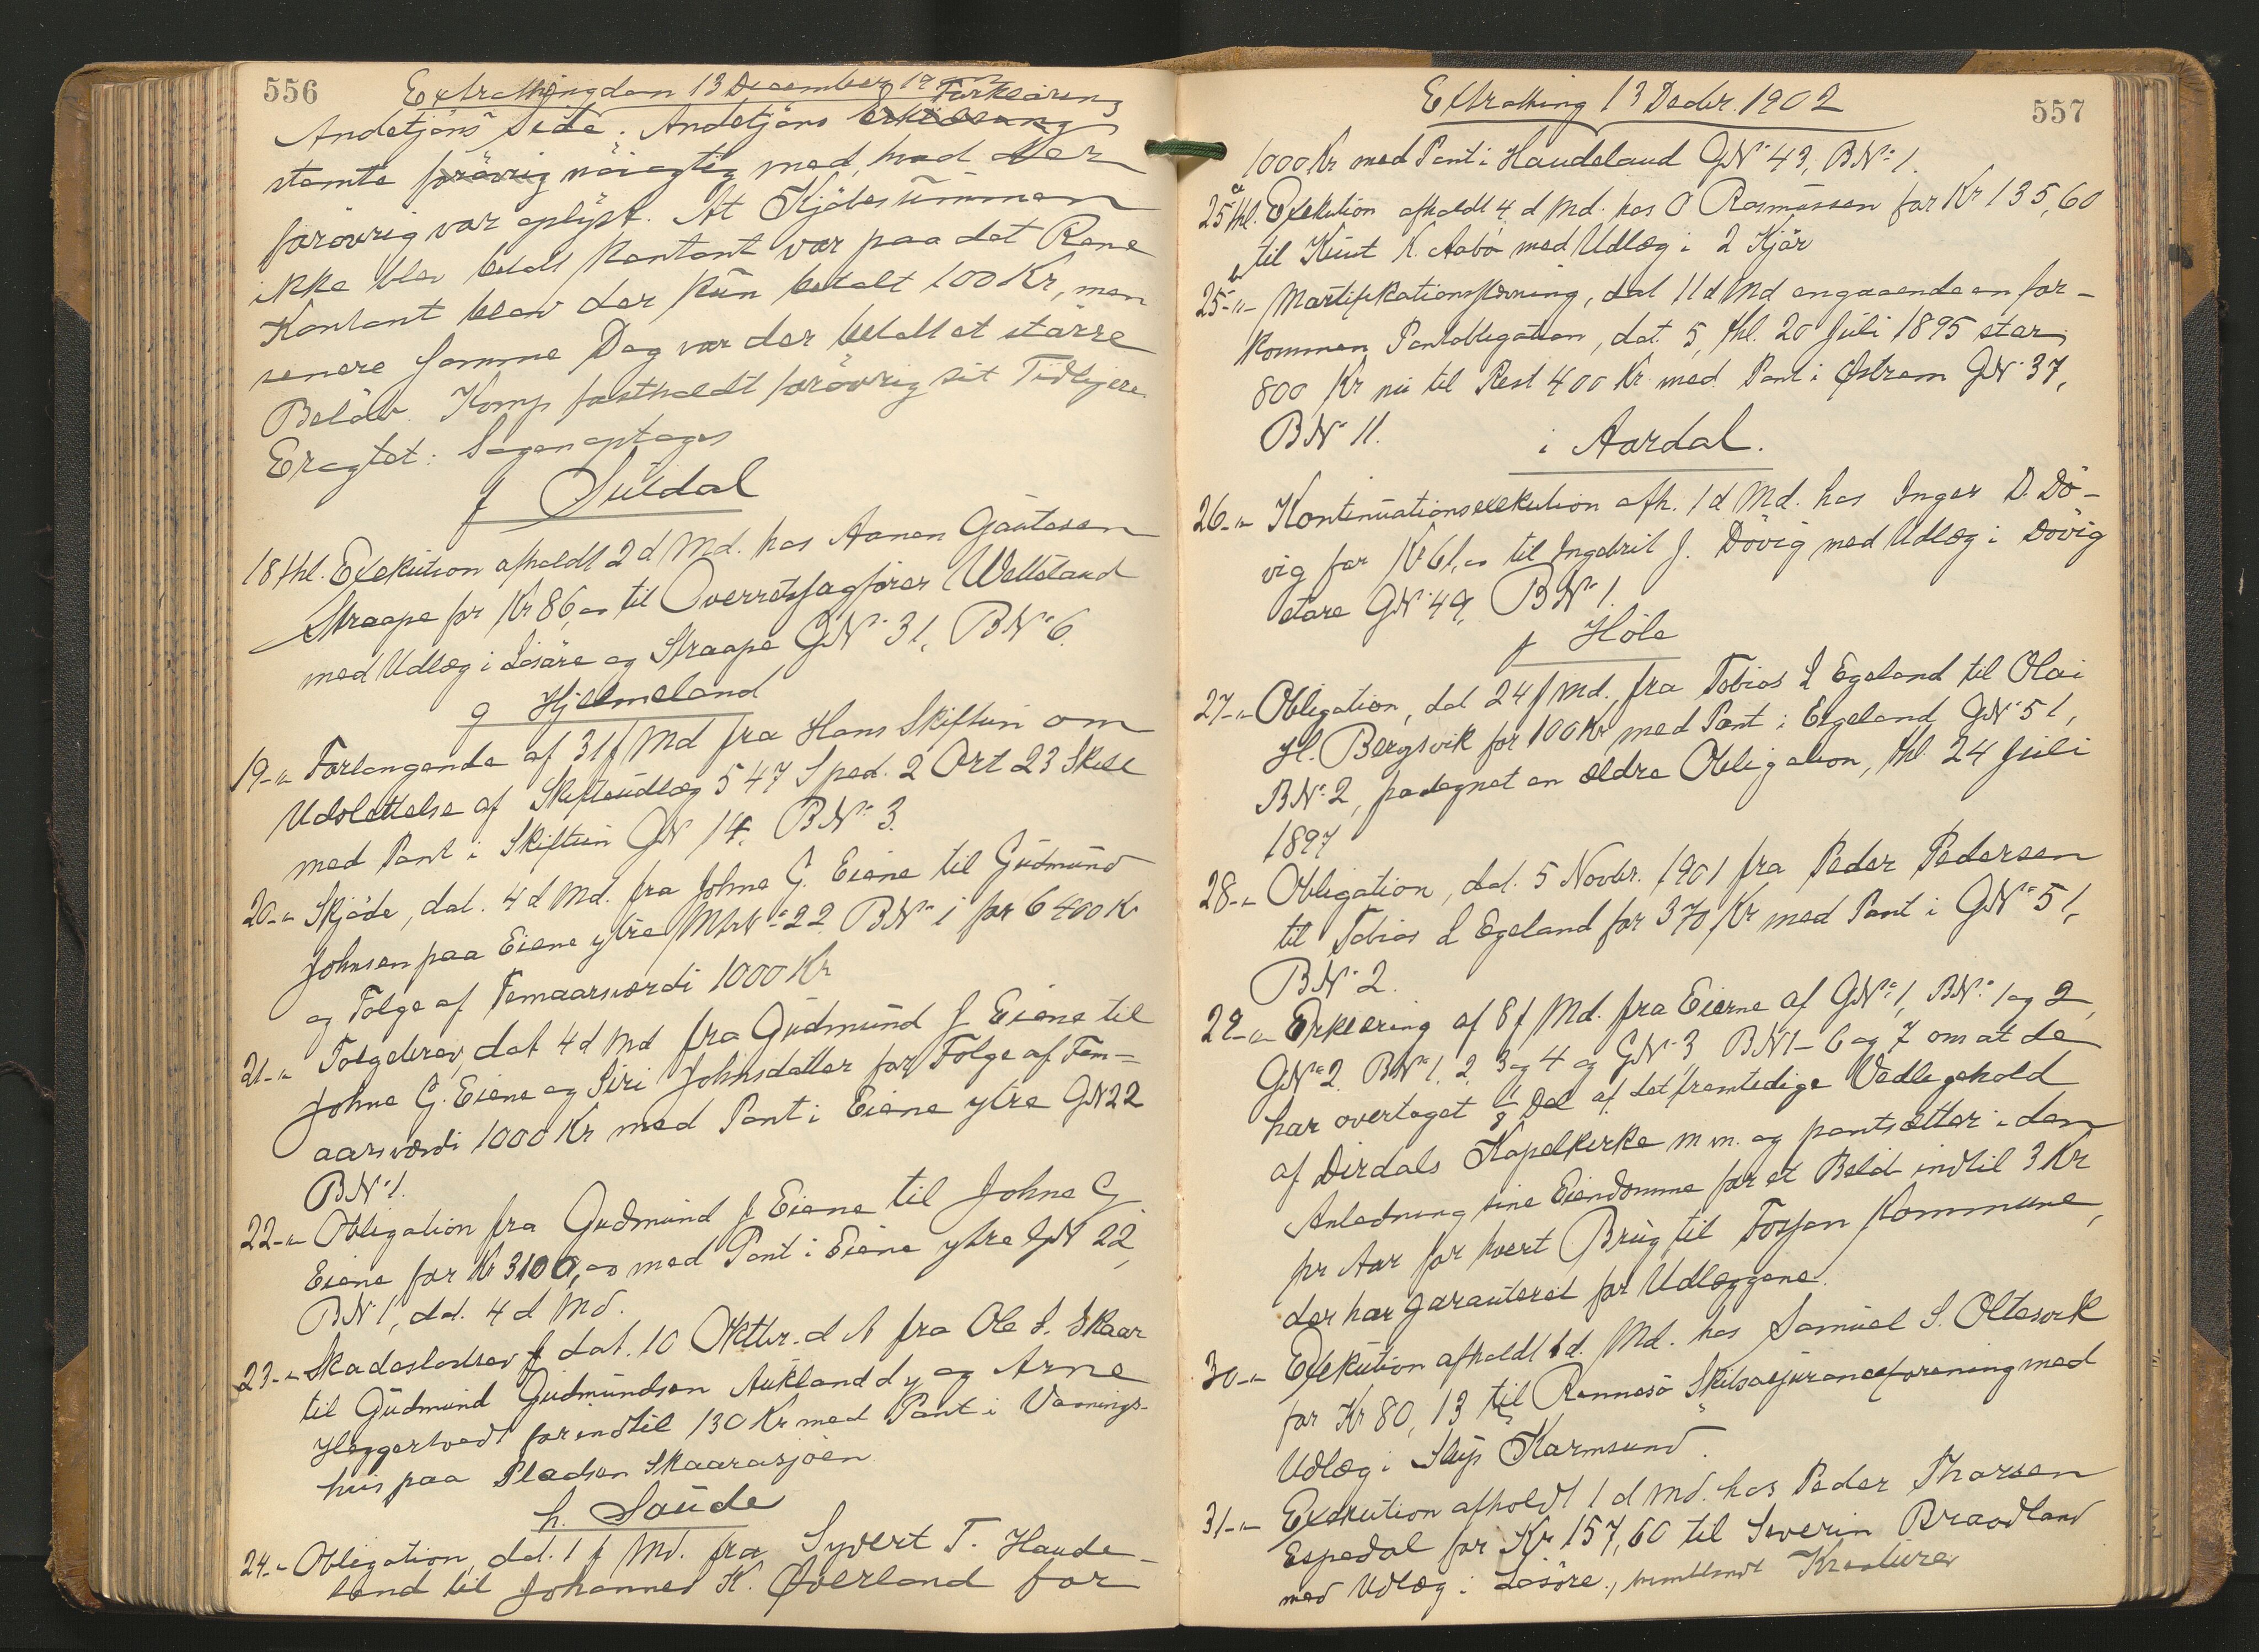 556
Extrathing den 13 December 19
Forklaring
Andetjöns Side. Andetjöns
stemte forövrig nöiagtig med, hvad der
forövrig var oplyst. At Kjöbesummen
ikke blev betalt kontant var paa det Rene
Kontant blev der kun betalt 100 Kr, men
senere samme Dag var der betalt et större
Belöb. Komp fastholdt forövrig sit Tidligere
Eragtet: Sagen optages
f Suldal
18 thl. Exekution afholdt 2 d Md. hos Aanen Gautesen
Straape for Kr 86,00 til Overretssagförer Wetteland
med Udlæg i Lösöre og Straape GN: 31, BN: 6.
g Hjelmeland
19-"- Forlangende af 31 f Md fra Hans Skiftun om
Udslettelse af Skifteudlæg 547 Sped. 2 Ort 23 Skill
med Pant i Skiftun GN 14, BN: 3.
20-"- Skjöde, dat. 4 d Md. fra Johne G. Eiene til Gudmund
Johnsen paa Eiene ytre MtrN: 22 BN: 1 for 6400 Kr
og Folge af Femaarsværdi 1000 Kr
21-"- Folgebrev, dat 4 d Md fra Gudmund J Eiene til
Johne G. Eiene og Siri Johnsdatter for Folge af Fem-
aarsværdi 1000 Kr med Pant i Eiene ytre GN 22
BN: 1.
22-"- Obligation fra Gudmund J Eiene til Johne G
Eiene for Kr 3100,00 med Pant i Eiene ytre GN 22,
BN: 1, dat. 4 d Md.
23-"- Skadeslösbrev dat. 10 Oktbr. d A fra Ole S. Skaar
til Gudmund Gudmundsen Aukland d y og Arne
Heggertvedt for indtil 130 Kr med Pant i Vaanings-
hus paa Pladsen Skaarasjöen
h. Saude
24-"- Obligation, dat. 1 f Md. fra Syvert T. Haude-
land til Johannes K. Øverland for
557
Extrathing 13 Decbr. 1902
1000 Kr med Pant i Haudeland GN: 43, BN: 1.
25 a thl. Exekution afholdt 4 d Md. hos O Rasmussen for Kr 135,60
til Knut K. Aabö med Udlæg i 2 Kjör
25 b -"- Mortifikationsstevning, dat 11 d Md angaaende en for-
kommen Pantobligation, dat. 5, thl. 20 Juli 1895 stor
800 Kr nu til Rest 400 Kr med Pant i Østrem GN: 37,
BN: 11.
i Aardal.
26-"- Kontinuationsexekution afh. 1 d Md. hos Inger D. Dö-
vig for Kr 61,00 til Ingebrit J. Dövig med Udlæg i Dövig
store GN: 49, BN: 1.
j Höle
27-"- Obligation, dat 24 f Md., fra Tobias L Egeland til Olai
H. Bergsvik for 100 Kr med Pant i Eigeland GN: 51,
BN: 2, padegnet en ældre Obligation, thl 24 Juli
1897
28-"- Obligation, dat. 5 Novbr. 1901 fra Peder Pedersen
til Tobias L Egeland for 370 Kr med Pant i GN: 51,
BN: 2.
29-"- Erklæring af 8 f Md. fra Eierne af GN: 1, BN: 1 og 2,
GN: 2 BN: 1, 2, 3 og 4 og GN: 3, BN 1-6 og 7 om at de
har overtaget 1/8 Del af det fremtidige Vedligehold
af Dirdals Kapelkirke m m. og pantsætter i den
Anledning sine Eiendomme for et Belöb indtil 3 Kr
pr Aar for hvert Brug til Fossan Kommune,
der har garanteret for Udlæggene.
30-"- Exekution afholdt 1 d. Md. hos Samuel S. Oltesvik
for Kr 80,13 til Rennesö Skibsassuranceforening med
Udlæg i Skip Karmsund.
31-"- Exekution afholdt 1 d Md. hos Peder Thorsen
Espedal for Kr 157,60 til Severin Braadland
med Udlæg i Lösöre, hvoriblandt Kreaturer